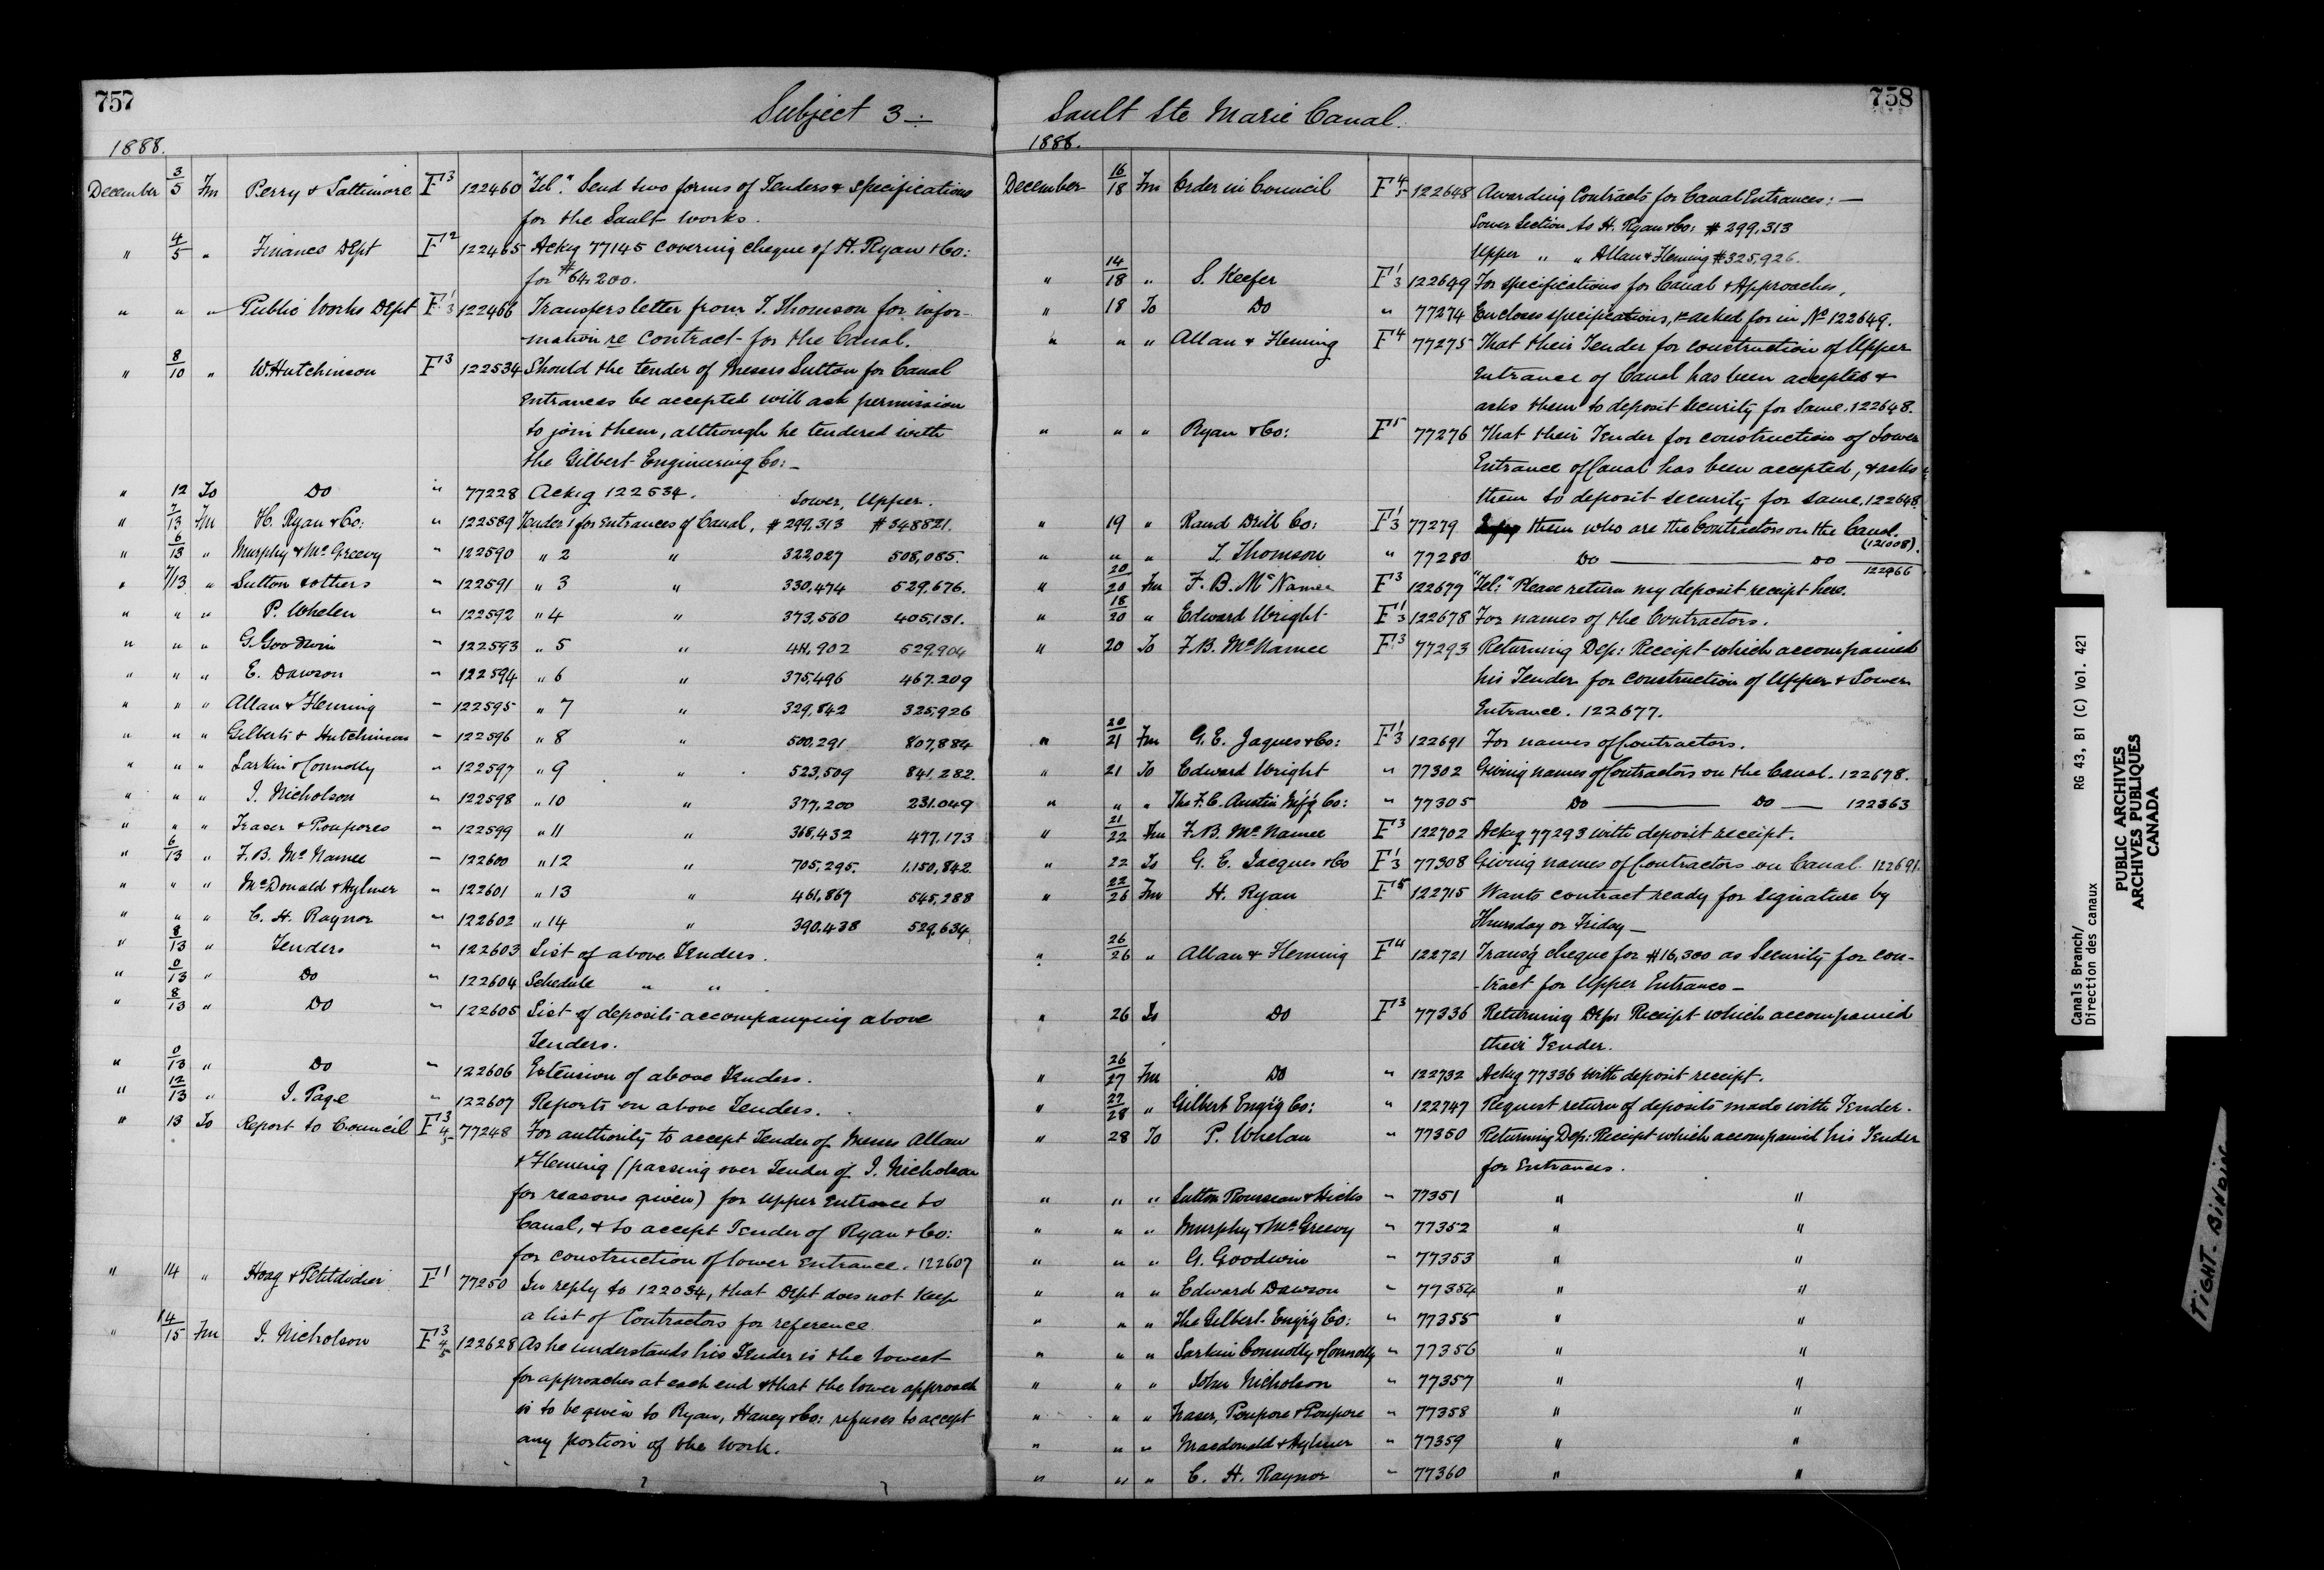 757
Subject 3 —:
1888.
December 3/5 Fm Perry & F3 122460 "Tel:" Send two forms of Tenders & Specifications
for the Sault works.
" 4/5 " Finance Dept F12 122465 Ackg 77145 covering cheque of H. Ryan & Co:
for $64,200.
" " " Public Works Dept F1/3 122466 Transfers letter from T. Thomson for infor-
-mation re contract for the Canal.
" 8/10 " W. Hutchinson F3 122534 Should the tender of Messrs Sutton for Canal
Entrances be accepted will ask permission
to join them, although he tendered with
the Gilbert Engineering Co: -
" 12 To Do " 77228 Ackg 122534. Lower, Upper.
" 7/13 Fm H. Ryan & Co: " 122589 Tender 1 for Entrances of Canal, $299,313 $548821.
" 6/13 " Murphy & McGreevy " 122590 " 2 " 322,027 508,085.
" 7/13 " Sutton & others " 122591 " 3 " 330,474 529,676.
" " " P. Whelen " 122592 " 4 " 373,560 405,131.
" " " G. Goodwin " 122593 " 5 " 411,902 529,904
" " " E. Dawson " 122594 " 6 " 375,496 467,209
" " " Allan & Fleming " 122595 " 7 " 329,842 325,926
" " " Gilberts & Hutchinson " 122596 " 8 " 500,291 807,884
" " " Larkin & Connolly " 122597 " 9 " 523,509 841,282
" " " J. Nicholson " 122598 " 10 " 377,200 231,049
" " " Fraser & Poupores " 122599 " 11 " 368,432 477,173
" 6/13 " F. B. McNamee " 122600 " 12 " 705,295. 1,150,842.
" " " McDonald & Aylmer " 122601 " 13 " 461,867 545,288
" " " C. H. Raynor " 122602 " 14 " 390,438 529,634
" 8/13 " Tenders " 122603 List of above Tenders.
" 0/13 " Do " 122604 Schedule " " .
" 8/13 " Do " 122605 List of deposits accompanying above
Tenders.
" 0/13 " Do " 122606 Extension of above Tenders.
" 12/13 " J. Page " 122607 Reports on above Tenders.
" 13 To Report to Council F3/4/5 77248 For authority to accept Tender of Messrs Allan
& Fleming (passing over Tender of J. Nicholson
for reasons given) for upper Entrance to
Canal, & to accept Tender of Ryan & Co:
for construction of lower Entrance. 122607
" 14 " Hoag & Petitdidier F1 77250 In reply to 122034, that Dept does not keep
a list of Contractors for reference
" 14/15 Fm J. Nicholson F3/4/5 122628 As he understands his Tender is the lowest
for approaches at each end & that the lower approach
is to be given to Ryan, Haney & Co: refuses to accept
any portion of the work.
758
Sault Ste Marie Canal.
1888.
December 16/18 Fm Order in Council F4/5 122648 Awarding Contracts for Canal Entrances: —
Lower Section to H. Ryan & Co: $299,313
Upper " " Allan & Fleming $325,926.
" 14/18 " S. Keefer F1/3 122649 For specifications for Canal & Approaches,
" 18 To Do " 77274 Encloses specifications, asked for in No 122649.
" " " Allan & Fleming F4 77275 That their Tender for construction of Upper
Entrance of Canal has been accepted &
asks them to deposit security for same. 122648.
" " " Ryan & Co: F5 77276 That their Tender for construction of Lower
Entrance of Canal has been accepted, & asks
them to deposit security for same. 122648.
" 19 " Rand Drill Co: F1/3 77279 them who are the Contractors on the Canal.
(121008).
" " " T. Thomson " 77280 Do — Do — 122466
" 20/20 Fm F. B. McNamee F3 122677 "Tel:" Please return my deposit receipt here.
" 18/20 " Edward Wright F1/3 122678 For names of the Contractors.
" 20 To F. B. McNamee F3 77293 Returning Dep: Receipt which accompanied
his Tender for construction of Upper & Lower
Entrance. 122677.
" 20/21 Fm G. E. Jaques & Co: F1/3 122691 For names of Contractors.
" 21 To Edward Wright " 77302 Giving names of Contractors on the Canal. 122678.
" " " The F. C. Austin Mf'g Co: " 77305 Do — Do — 122363
" 21/22 Fm F. B. McNamee F3 122702 Ackg 77293 with deposit receipt.
" 22 To G. E. Jacques & Co F1/3 77308 Giving names of Contractors on Canal. 122691.
" 22/26 Fm H. Ryan F5 122715 Wants contract ready for signature by
Thursday or Friday —
" 26/26 " Allan & Fleming F4 122721 Transg cheque for $16,300 as Security for con-
-tract for Upper Entrance —
" 26 To Do F3 77336 Returning Dep: Receipt which accompanied
their Tender.
" 26/27 Fm Do " 122732 Ackg 77336 with deposit receipt.
" 27/28 " Gilbert Eng'g Co: " 122747 Request return of deposits made with Tender.
" 28 To P. Whelan " 77350 Returning Dep: Receipt which accompanied his Tender
for Entrances.
" " " Sutton Rousseau & Hicks " 77351 " "
" " " Murphy & McGreevy " 77352 " "
" " " G. Goodwin " 77353 " "
" " " Edward Dawson " 77354 " "
" " " The Gilbert Eng'g Co: " 77355 " "
" " " Larkin Connolly & Connolly " 77356 " "
" " " John Nicholson " 77357 " "
" " " Fraser, Poupore & Poupore " 77358 " "
" " " Macdonald & Aylmer " 77359 " "
" " " C. H. Raynor " 77360 " "
Canals Branch/ RG 43, B1 (C) Vol. 421
Direction des canaux
PUBLIC ARCHIVES
ARCHIVES PUBLIQUES
CANADA
TIGHT BINDING